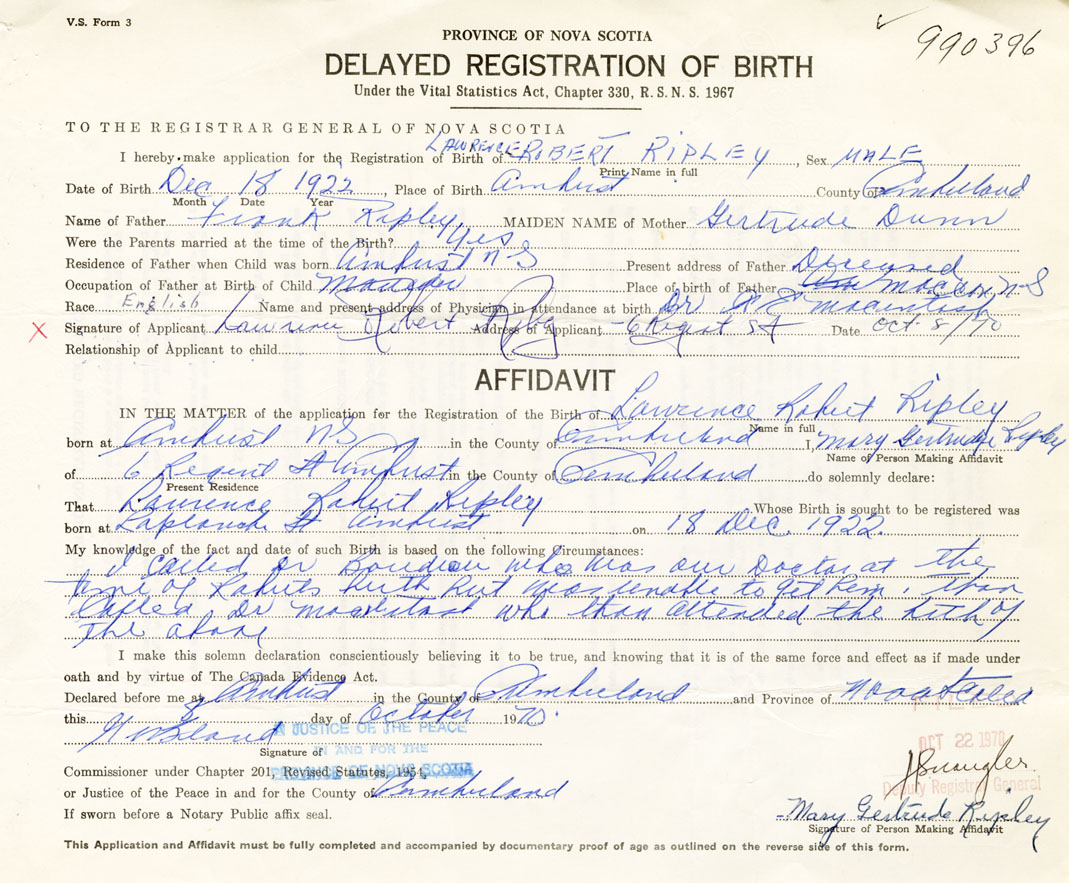 V.S. Form 3
990396
PROVINCE OF NOVA SCOTIA
DELAYED REGISTRATION OF BIRTH
Under the Vital Statistics Act, Chapter 330, R.S.N.S. 1967
TO THE REGISTRAR GENERAL OF NOVA SCOTIA
I hereby make application for the Registration of Birth of LAWRENCE ROBERT RIPLEY, Sex MALE
Print Name in full
Date of Birth Dec 18 1922, Place of Birth Amhust County of Cumberland
Month Date Year
Name of Father Frank Ripley, MAIDEN NAME of Mother Gertrude Dunn
Were the Parents married at the time of the Birth? Yes
Residence of Father when Child was born Amhust N S Present address of Father Deceased
Occupation of Father at Birth of Child Manager Place of birth of Father Maccan N-S
Race English Name and present address of Physician in attendance at birth Dr
X Signature of Applicant Lawrence Robert Ripley Address of Applicant - 6 Regent St Date Oct. 8/70
Relationship of Applicant to child
AFFIDAVIT
IN THE MATTER of the application for the Registration of the Birth of Lawrence Robert Ripley
Name in full
born at Amhust NS in the County of Cumberland I, Mary Gertrude Ripley
Name of Person Making Affidavit
of 6 Regent St Amhust in the County of Cumberland do solemnly declare:
Present Residence
That Lawrence Robert Ripley Whose Birth is sought to be registered was
born at Laplanch St Amhust on 18 Dec. 1922.
My knowledge of the fact and date of such Birth is based on the following Circumstances:
I called Dr who was our Doctor at the
time of Roberts birth but was unable to get him, than
Called Dr who than attended the birth of
the above
I make this solemn declaration conscientiously believing it to be true, and knowing that it is of the same force and effect as if made under
oath and by virtue of The Canada Evidence Act.
Declared before me at Amhust in the County of Cumberland and Province of Nova Scotia
this day of October 1970.
A JUSTICE OF THE PEACE
IN AND FOR THE
PROVINCE OF NOVA SCOTIA
Signature of
Commissioner under Chapter 201, Revised Statutes, 1954,
or Justice of the Peace in and for the County of Cumberland
If sworn before a Notary Public affix seal.
OCT 22 1970
Deputy Registrar General
Mary Gertrude Ripley
Signature of Person Making Affidavit
This Application and Affidavit must be fully completed and accompanied by documentary proof of age as outlined on the reverse side of this form.